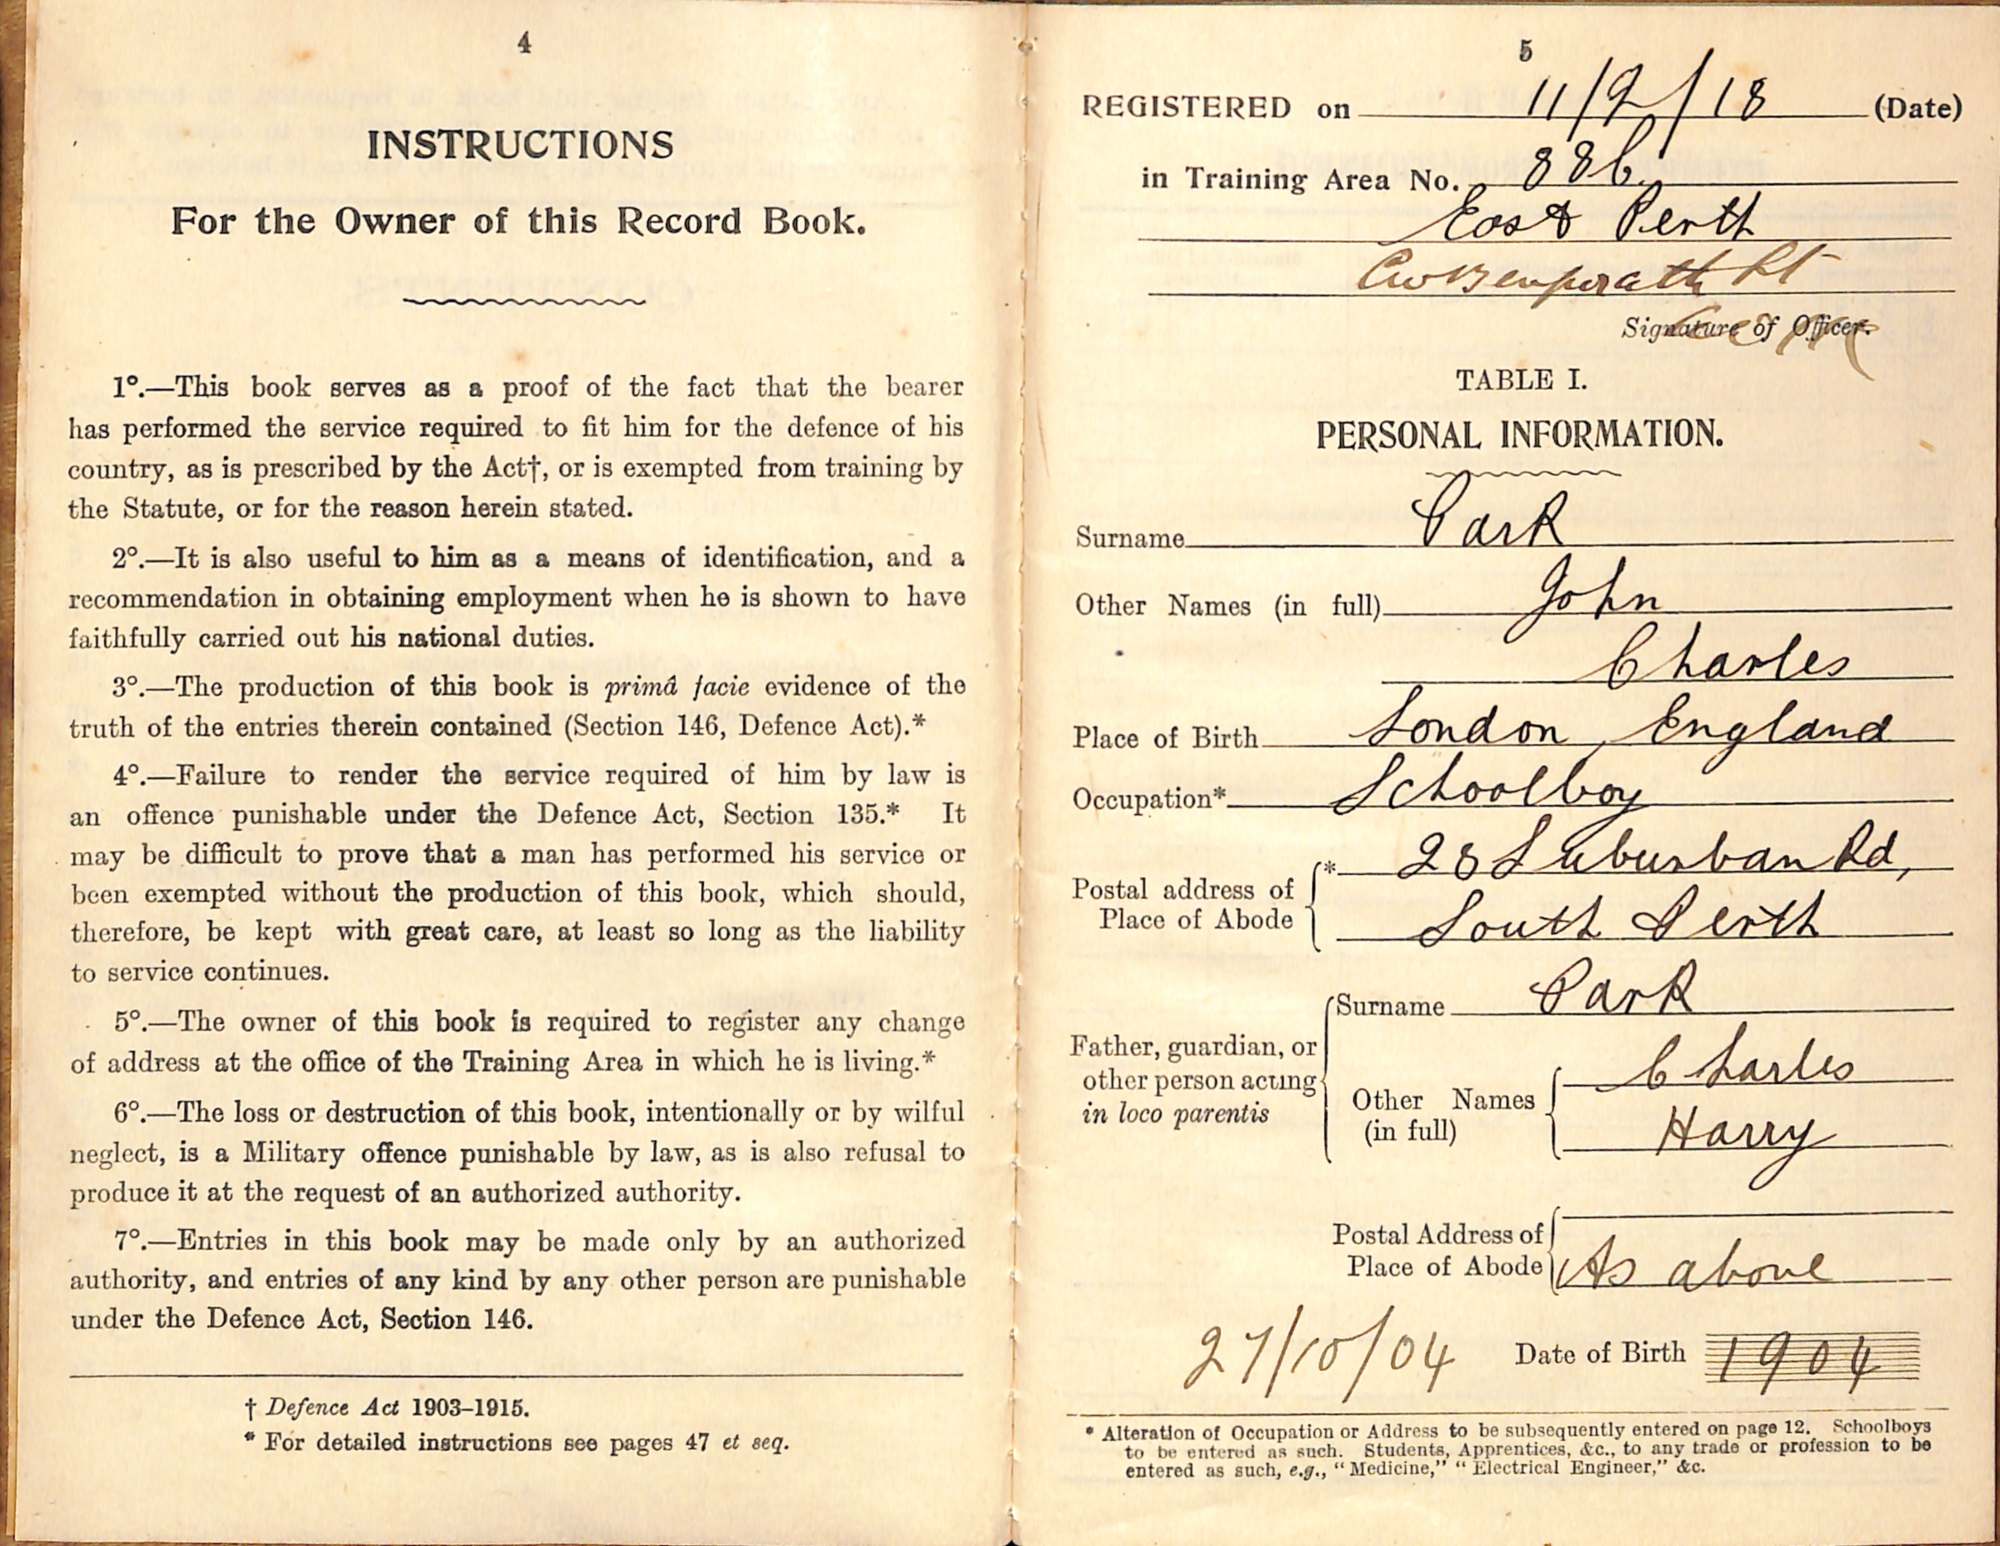 4
INSTRUCTIONS
For the Owner of this Record Book.
1°.—This book serves as a proof of the fact that the bearer
has performed the service required to fit him for the defence of his
country, as is prescribed by the Act†, or is exempted from training by
the Statute, or for the reason herein stated.
2°.—It is also useful to him as a means of identification, and a
recommendation in obtaining employment when he is shown to have
faithfully carried out his national duties.
3°.—The production of this book is primâ facie evidence of the
truth of the entries therein contained (Section 146, Defence Act).*
4°.—Failure to render the service required of him by law is
an offence punishable under the Defence Act, Section 135.* It
may be difficult to prove that a man has performed his service or
been exempted without the production of this book, which should,
therefore, be kept with great care, at least so long as the liability
to service continues.
5°.—The owner of this book is required to register any change
of address at the office of the Training Area in which he is living.*
6°.—The loss or destruction of this book, intentionally or by wilful
neglect, is a Military offence punishable by law, as is also refusal to
produce it at the request of an authorized authority.
7°.—Entries in this book may be made only by an authorized
authority, and entries of any kind by any other person are punishable
under the Defence Act, Section 146.
† Defence Act 1903–1915.
* For detailed instructions see pages 47 et seq.
5
REGISTERED on 11/2/18 (Date)
in Training Area No. 88b
East Perth
Signature of Officer.
TABLE I.
PERSONAL INFORMATION.
Surname Park
Other Names (in full) John
Charles
Place of Birth London, England
Occupation* Schoolboy
Postal address of Place of Abode * 28 Suburban Rd,
South Perth
Father, guardian, or other person acting in loco parentis
Surname Park
Other Names (in full) Charles
Harry
Postal Address of
Place of Abode As above
27/10/04 Date of Birth 1904
* Alteration of Occupation or Address to be subsequently entered on page 12. Schoolboys
to be entered as such. Students, Apprentices, &c., to any trade or profession to be
entered as such, e.g., "Medicine," "Electrical Engineer," &c.